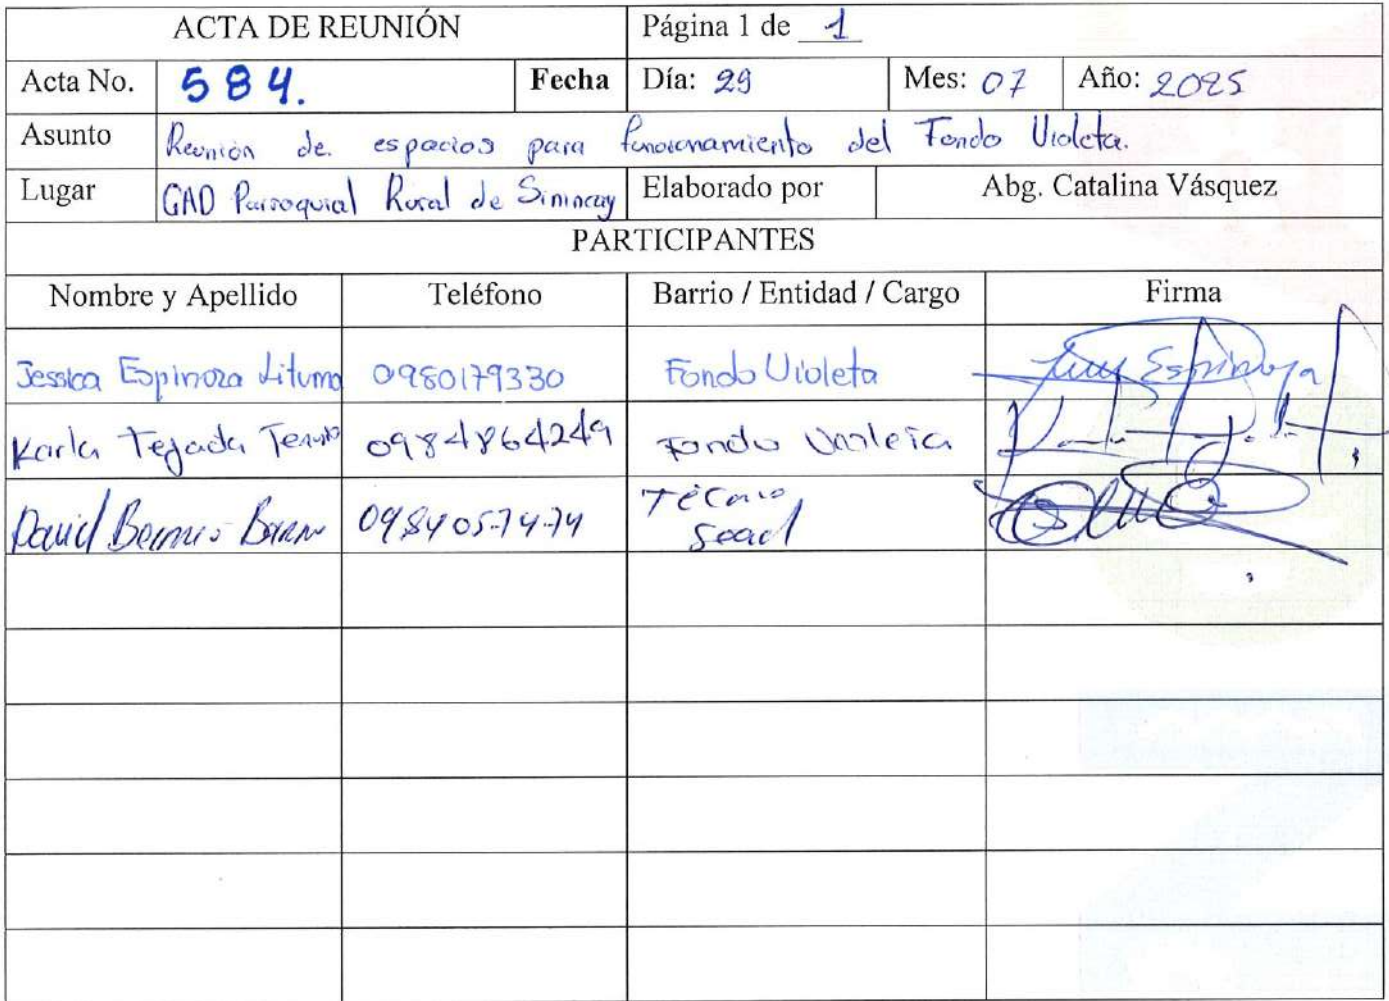 ACTA DE REUNIÓN Página 1 de 1
Acta No. 584. Fecha Día: 29 Mes: 07 Año: 2025
Asunto Reunión de espacios para funcionamiento del Fondo Violeta.
Lugar GAD Parroquial Rural de Sinincay Elaborado por Abg. Catalina Vásquez
PARTICIPANTES
Nombre y Apellido Teléfono Barrio / Entidad / Cargo Firma
Jessica Espinoza Lituma 0980179330 Fondo Violeta Espinoza
Karla Tejada 0984864249 Fondo Violeta
David 0984057474 Técnico